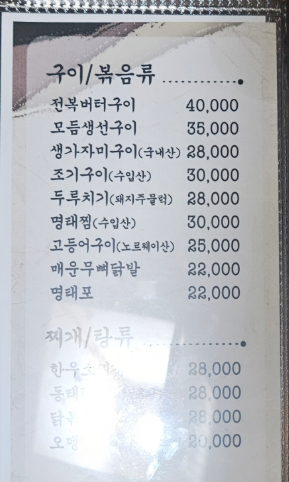 구이/볶음류
전복버터구이 40,000
모듬생선구이 35,000
생가자미구이(국내산) 28,000
조기구이(수입산) 30,000
두루치기(돼지주물럭) 28,000
명태찜(수입산) 30,000
고등어구이(노르웨이산) 25,000
매운무뼈닭발 22,000
명태포 22,000
찌개/탕류
28,000
28,000
28,000
20,000